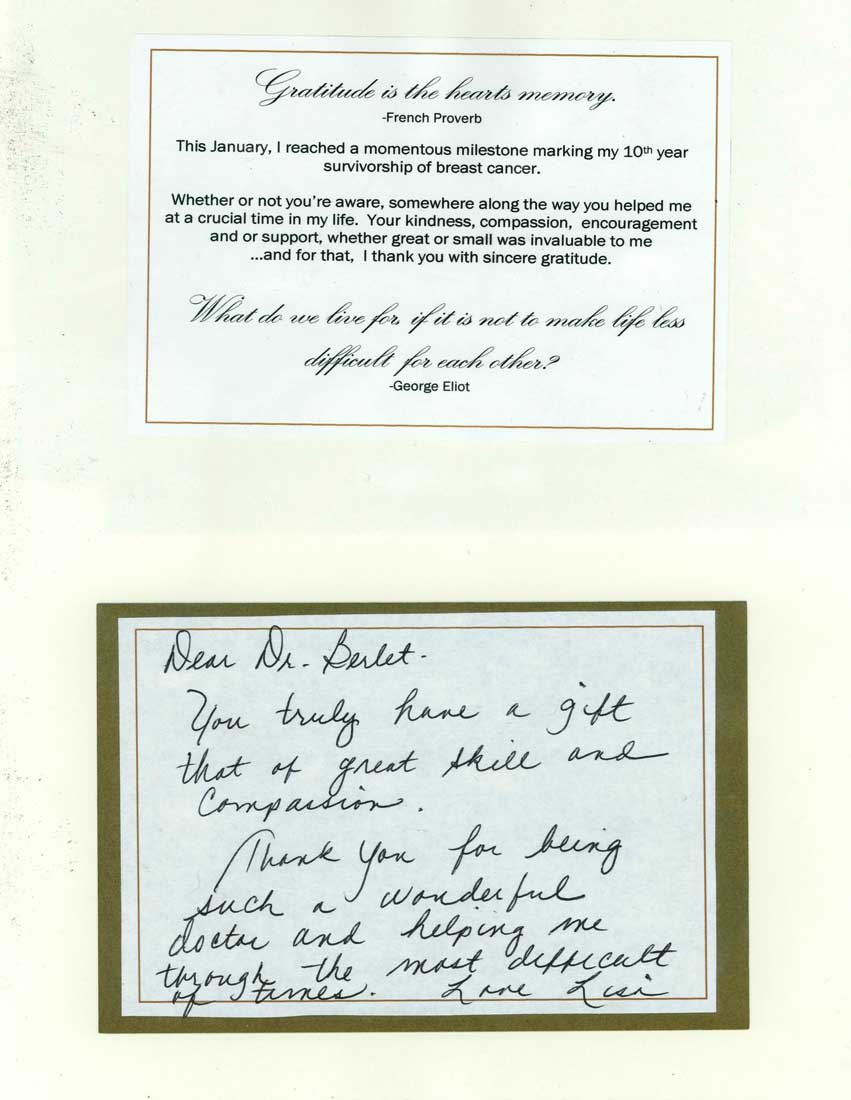 Gratitude is the hearts memory.
-French Proverb
This January, I reached a momentous milestone marking my 10th year
survivorship of breast cancer.
Whether or not you're aware, somewhere along the way you helped me
at a crucial time in my life. Your kindness, compassion, encouragement
and or support, whether great or small was invaluable to me
...and for that, I thank you with sincere gratitude.
What do we live for, if it is not to make life less
difficult for each other?
-George Eliot
Dear Dr. Berlet-
You truly have a gift
that of great skill and
Compassion.
Thank you for being
such a wonderful
doctor and helping me
through the most difficult
of times. Love Lisa